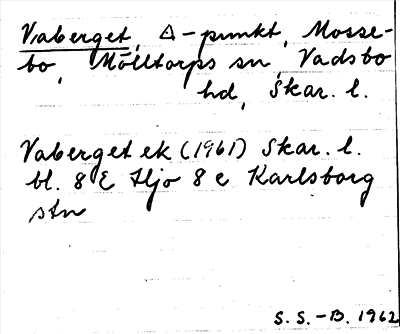 Vaberget, △-punkt, Mosse-
bo, Mölltorps sn, Vadsbo
hd, Skar. l.
Vaberget ek (1961) Skar. l.
bl. 8 E Hjo 8 e Karlsborg
stn
S. S.-B. 1962